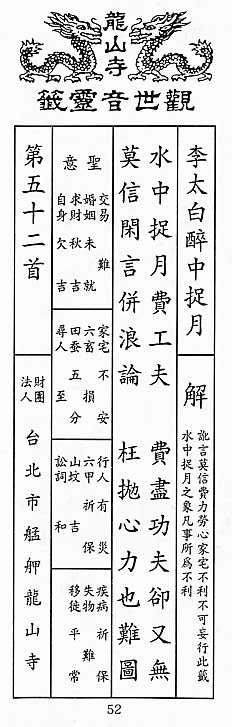 龍山寺
觀世音靈籤
李太白醉中捉月
解
訛言莫信費力勞心家宅不利不可妄行此籤
水中捉月之象凡事所為不利
水中捉月費工夫 費盡功夫卻又無
莫信閑言併浪論 枉拋心力也難圖
聖意
交易 難
婚姻 未就
求財 秋吉
自身 欠吉
家宅 不安
六畜 損
田蚕 五分
尋人 至
行人 有災
六甲 祈保
山墳 吉
訟詞 和
疾病 祈保
失物 難
移徙 平常
第五十二首
財團法人
台北市艋舺龍山寺
52